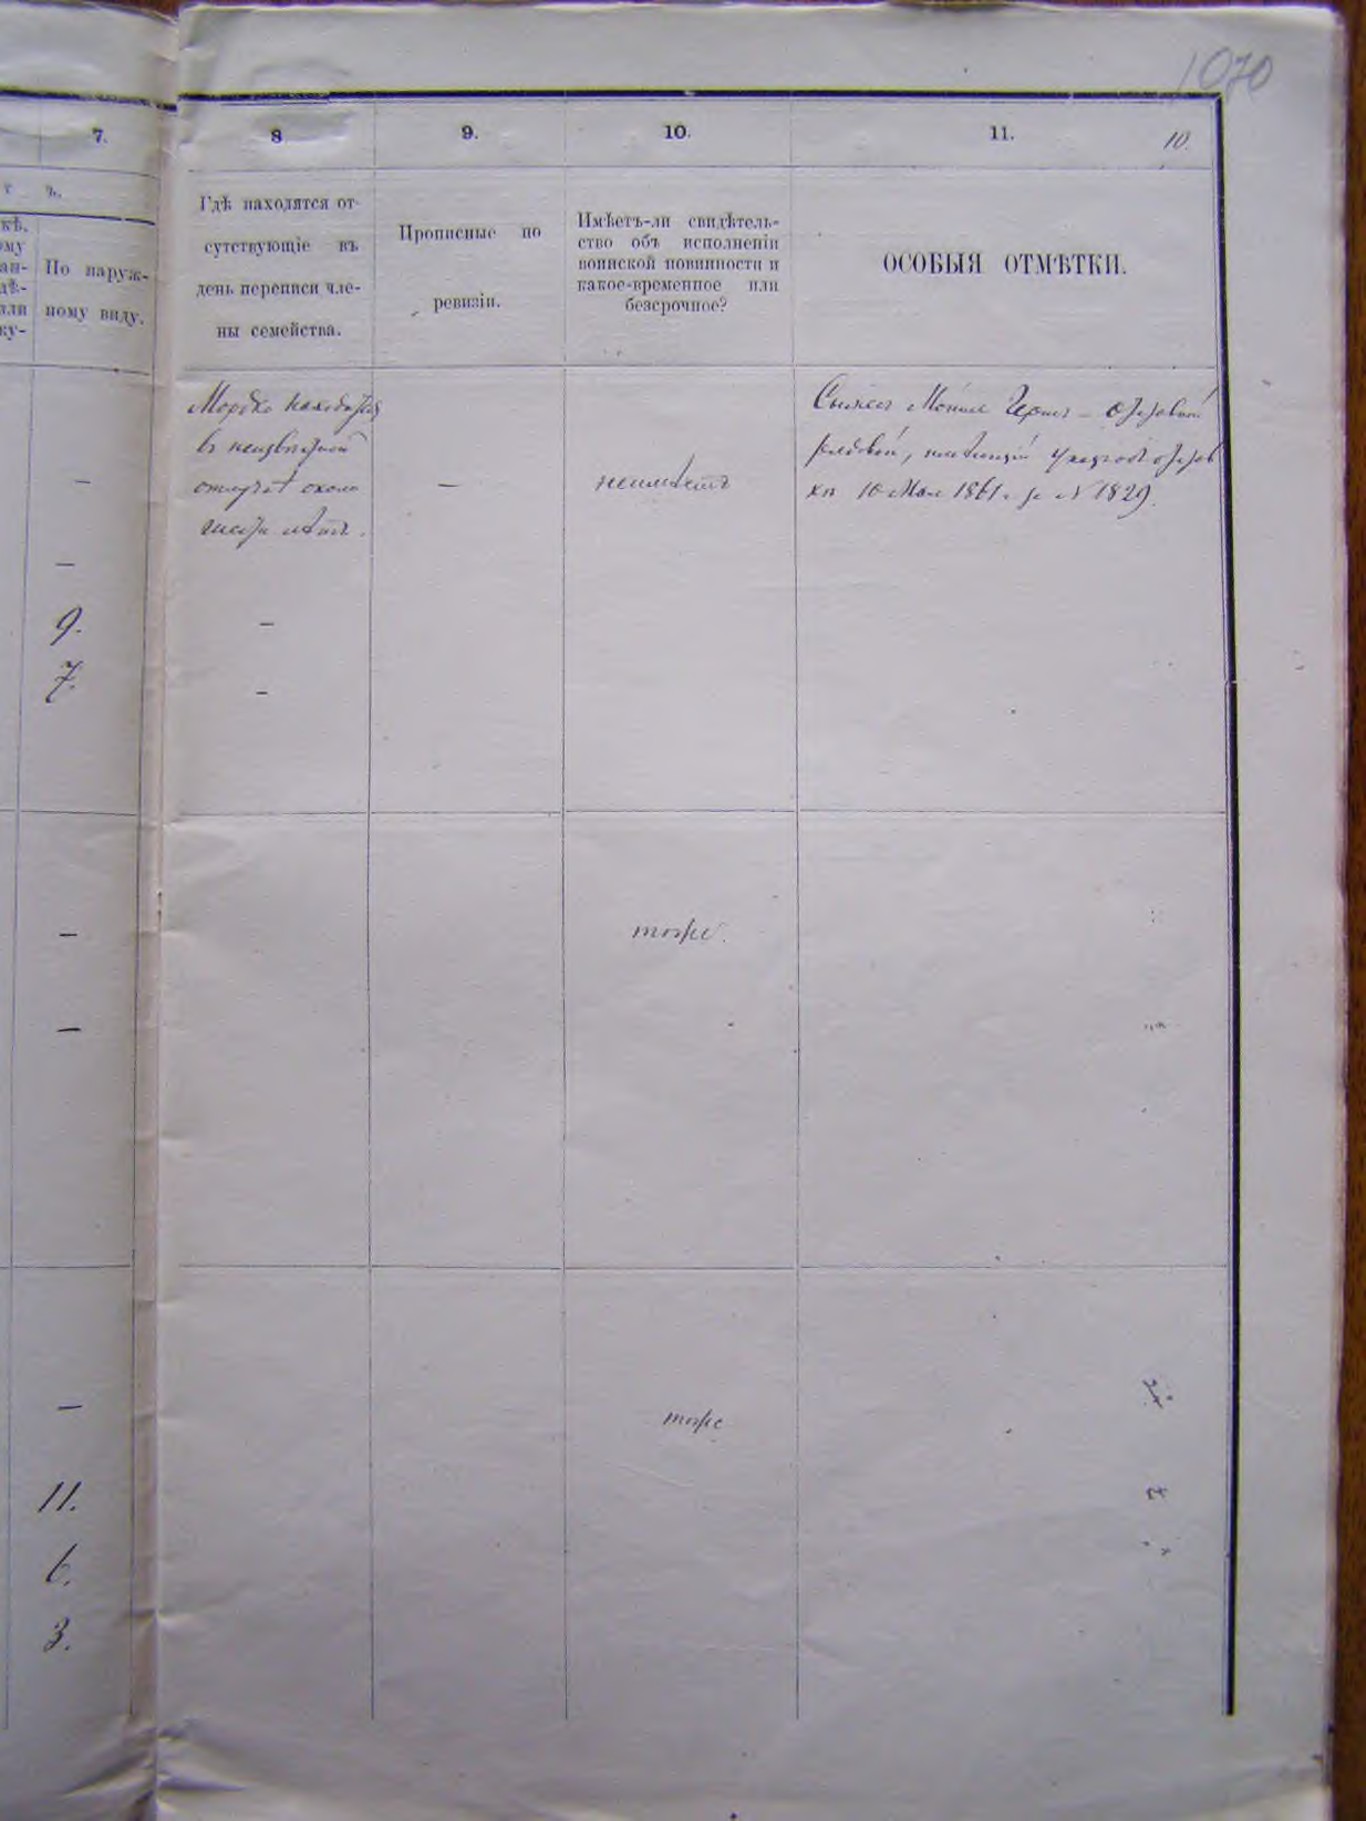 1070
7.
8
9.
10.
11.
10.
ъ.
По наруж-
ному виду.
Гдѣ находятся от-
сутствующіе въ
день переписи чле-
ны семейства.
Прописные по
ревизіи.
Имѣетъ-ли свидѣтель-
ство объ исполненіи
воинской повинности и
какое-временное или
безсрочное?
ОСОБЫЯ ОТМѢТКИ.
Мордко находится
въ неизвѣстной
отлучкѣ около
шести лѣтъ.
—
—
неимѣетъ
Мошке
рядовой,
10 Мая 1861 г. за № 1829.
—
—
9.
—
7.
—
—
тоже.
—
—
тоже
11.
6.
3.